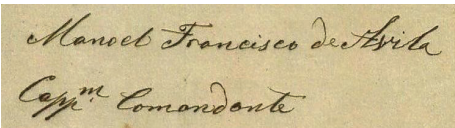 Manoel Francisco de Avila
Cappm. Comandante